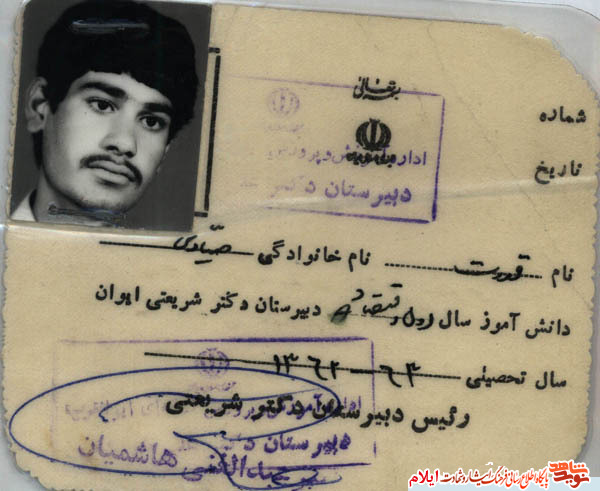 بسمه تعالی
شماره
تاریخ
دبیرستان دکتر
نام قدرت نام خانوادگی صیادی
دانش آموز سال اول اقتصاد دبیرستان دکتر شریعتی ایوان
سال تحصیلی ۶۳ - ۱۳۶۲
رئیس دبیرستان دکتر شریعتی
دبیرستان
عبدالنبی هاشمیان
نوید شاهد
پایگاه اطلاع رسانی فرهنگ ایثار و شهادت ایلام